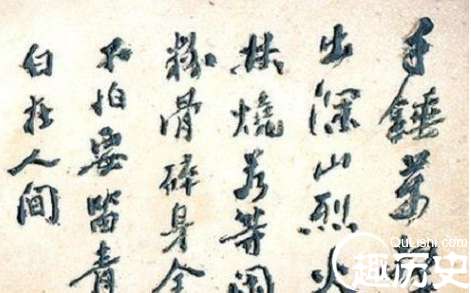 手錘萬
出深山烈火
焚燒若等閑
粉骨碎身全
不怕要留青
白在人间
QuLiShi.com
趣历史